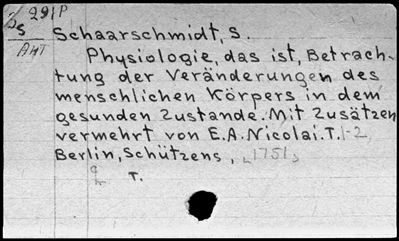 291P
Schaarschmidt, S.
Ант
Physiologie, das ist, Betrach-
tung der Veränderungen des
menschlichen Körpers in dem
gesunden Zustande. Mit Zusätzen
vermehrt von E.A. Nicolai. T. 1-2
Berlin, Schützens, 1751
T.